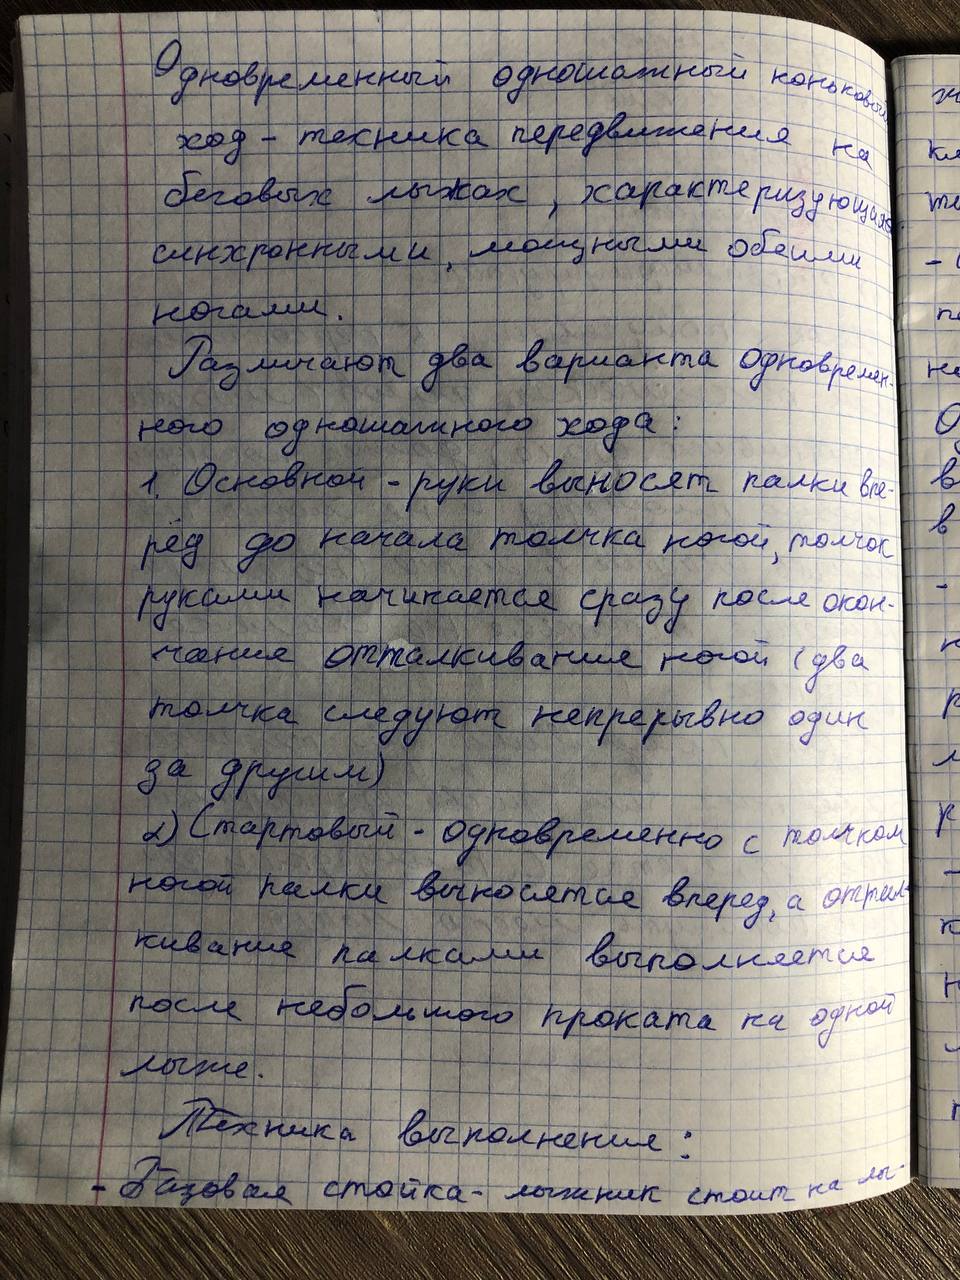 Одновременный одношажный коньковый
ход - техника передвижения на
беговых лыжах, характеризующихся
синхронными, мощными обеими
ногами.
Различают два варианта одновремен-
ного одношажного хода:
1. Основной - руки выносят палки впе-
рёд до начала толчка ногой, толчок
руками начинается сразу после окон-
чания отталкивания ногой (два
толчка следуют непрерывно один
за другим)
2) Стартовый - одновременно с толчком
ногой палки выносятся вперед, а оттал-
кивание палками выполняется
после небольшого проката на одной
лыже.
Техника выполнения:
- Базовая стойка - лыжник стоит на лы-